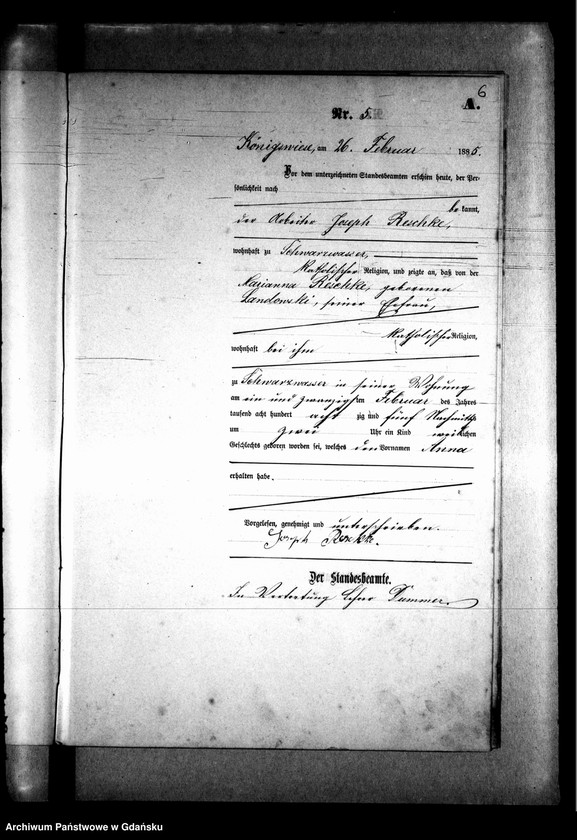 6
A.
Nr. 5.
Königswiese, am 26. Februar 1885.
Vor dem unterzeichneten Standesbeamten erschien heute, der Per-
sönlichkeit nach
bekannt,
der Arbeiter Joseph Reschke,
wohnhaft zu Schwarzwasser,
katholischer Religion, und zeigte an, daß von der
Marianna Reschke, geborenen
Landowski, seiner Ehefrau,
katholischer Religion,
wohnhaft bei ihm
zu Schwarzwasser in seiner Wohnung
am ein und zwanzigsten Februar des Jahres
tausend acht hundert acht zig und fünf Nachmittags
um zwei Uhr ein Kind weiblichen
Geschlechts geboren worden sei, welches den Vornamen Anna
erhalten habe.
Vorgelesen, genehmigt und unterschrieben.
Joseph Reschke.
Der Standesbeamte.
In Vertretung Lehrer Dummer.
Archiwum Państwowe w Gdańsku